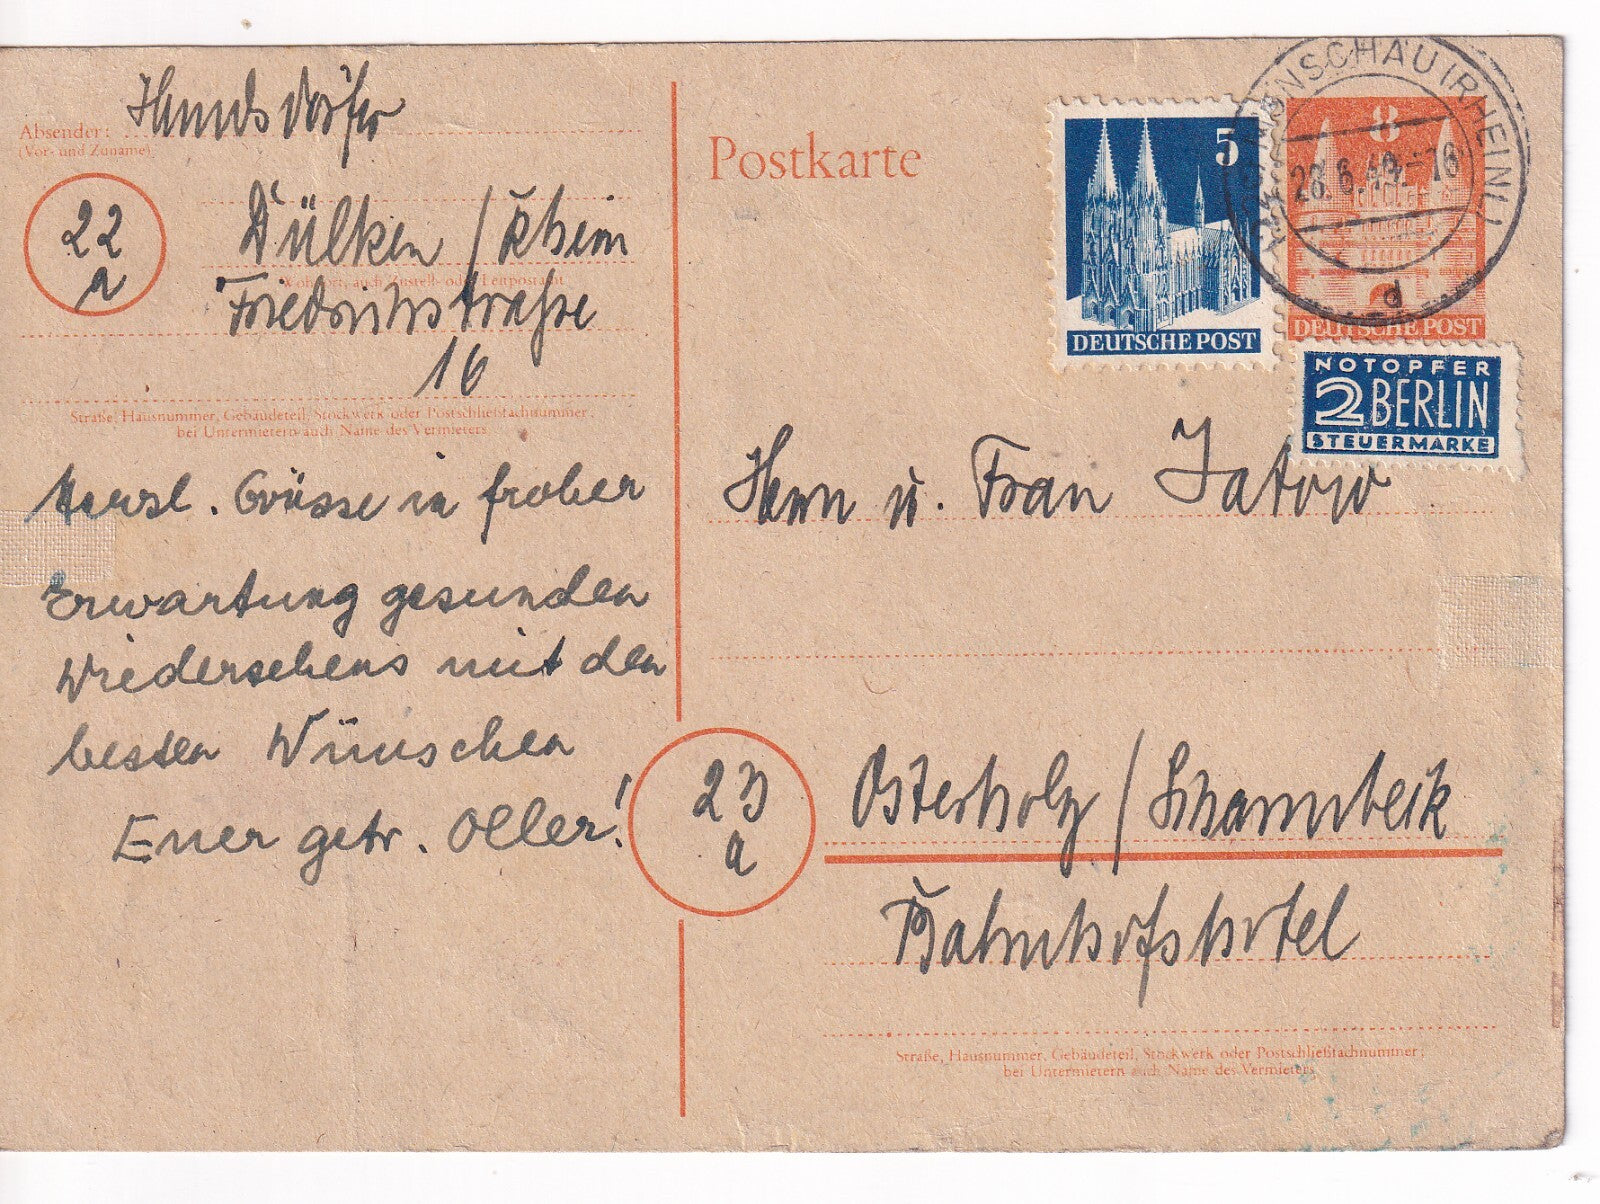 Absender:
(Vor- und Zuname)
22
a
Dülken / Rhein
Wohnort, auch Zustell- oder Leitpostamt
Friedrichstraße
16
Straße, Hausnummer, Gebäudeteil, Stockwerk oder Postschließfachnummer;
bei Untermietern auch Name des Vermieters
Herzl. Grüsse in froher
Erwartung gesunden
Wiedersehens mit den
besten Wünschen
Euer getr. Oller!
Postkarte
5
DEUTSCHE POST
8
DEUTSCHE POST
MONSCHAU (RHEINL)
28.6.49.-16
d
NOTOPFER
2 BERLIN
STEUERMARKE
Herrn u. Frau Jatow
23
a
Osterholz / Scharmbeck
Bahnhofshotel
Straße, Hausnummer, Gebäudeteil, Stockwerk oder Postschließfachnummer;
bei Untermietern auch Name des Vermieters